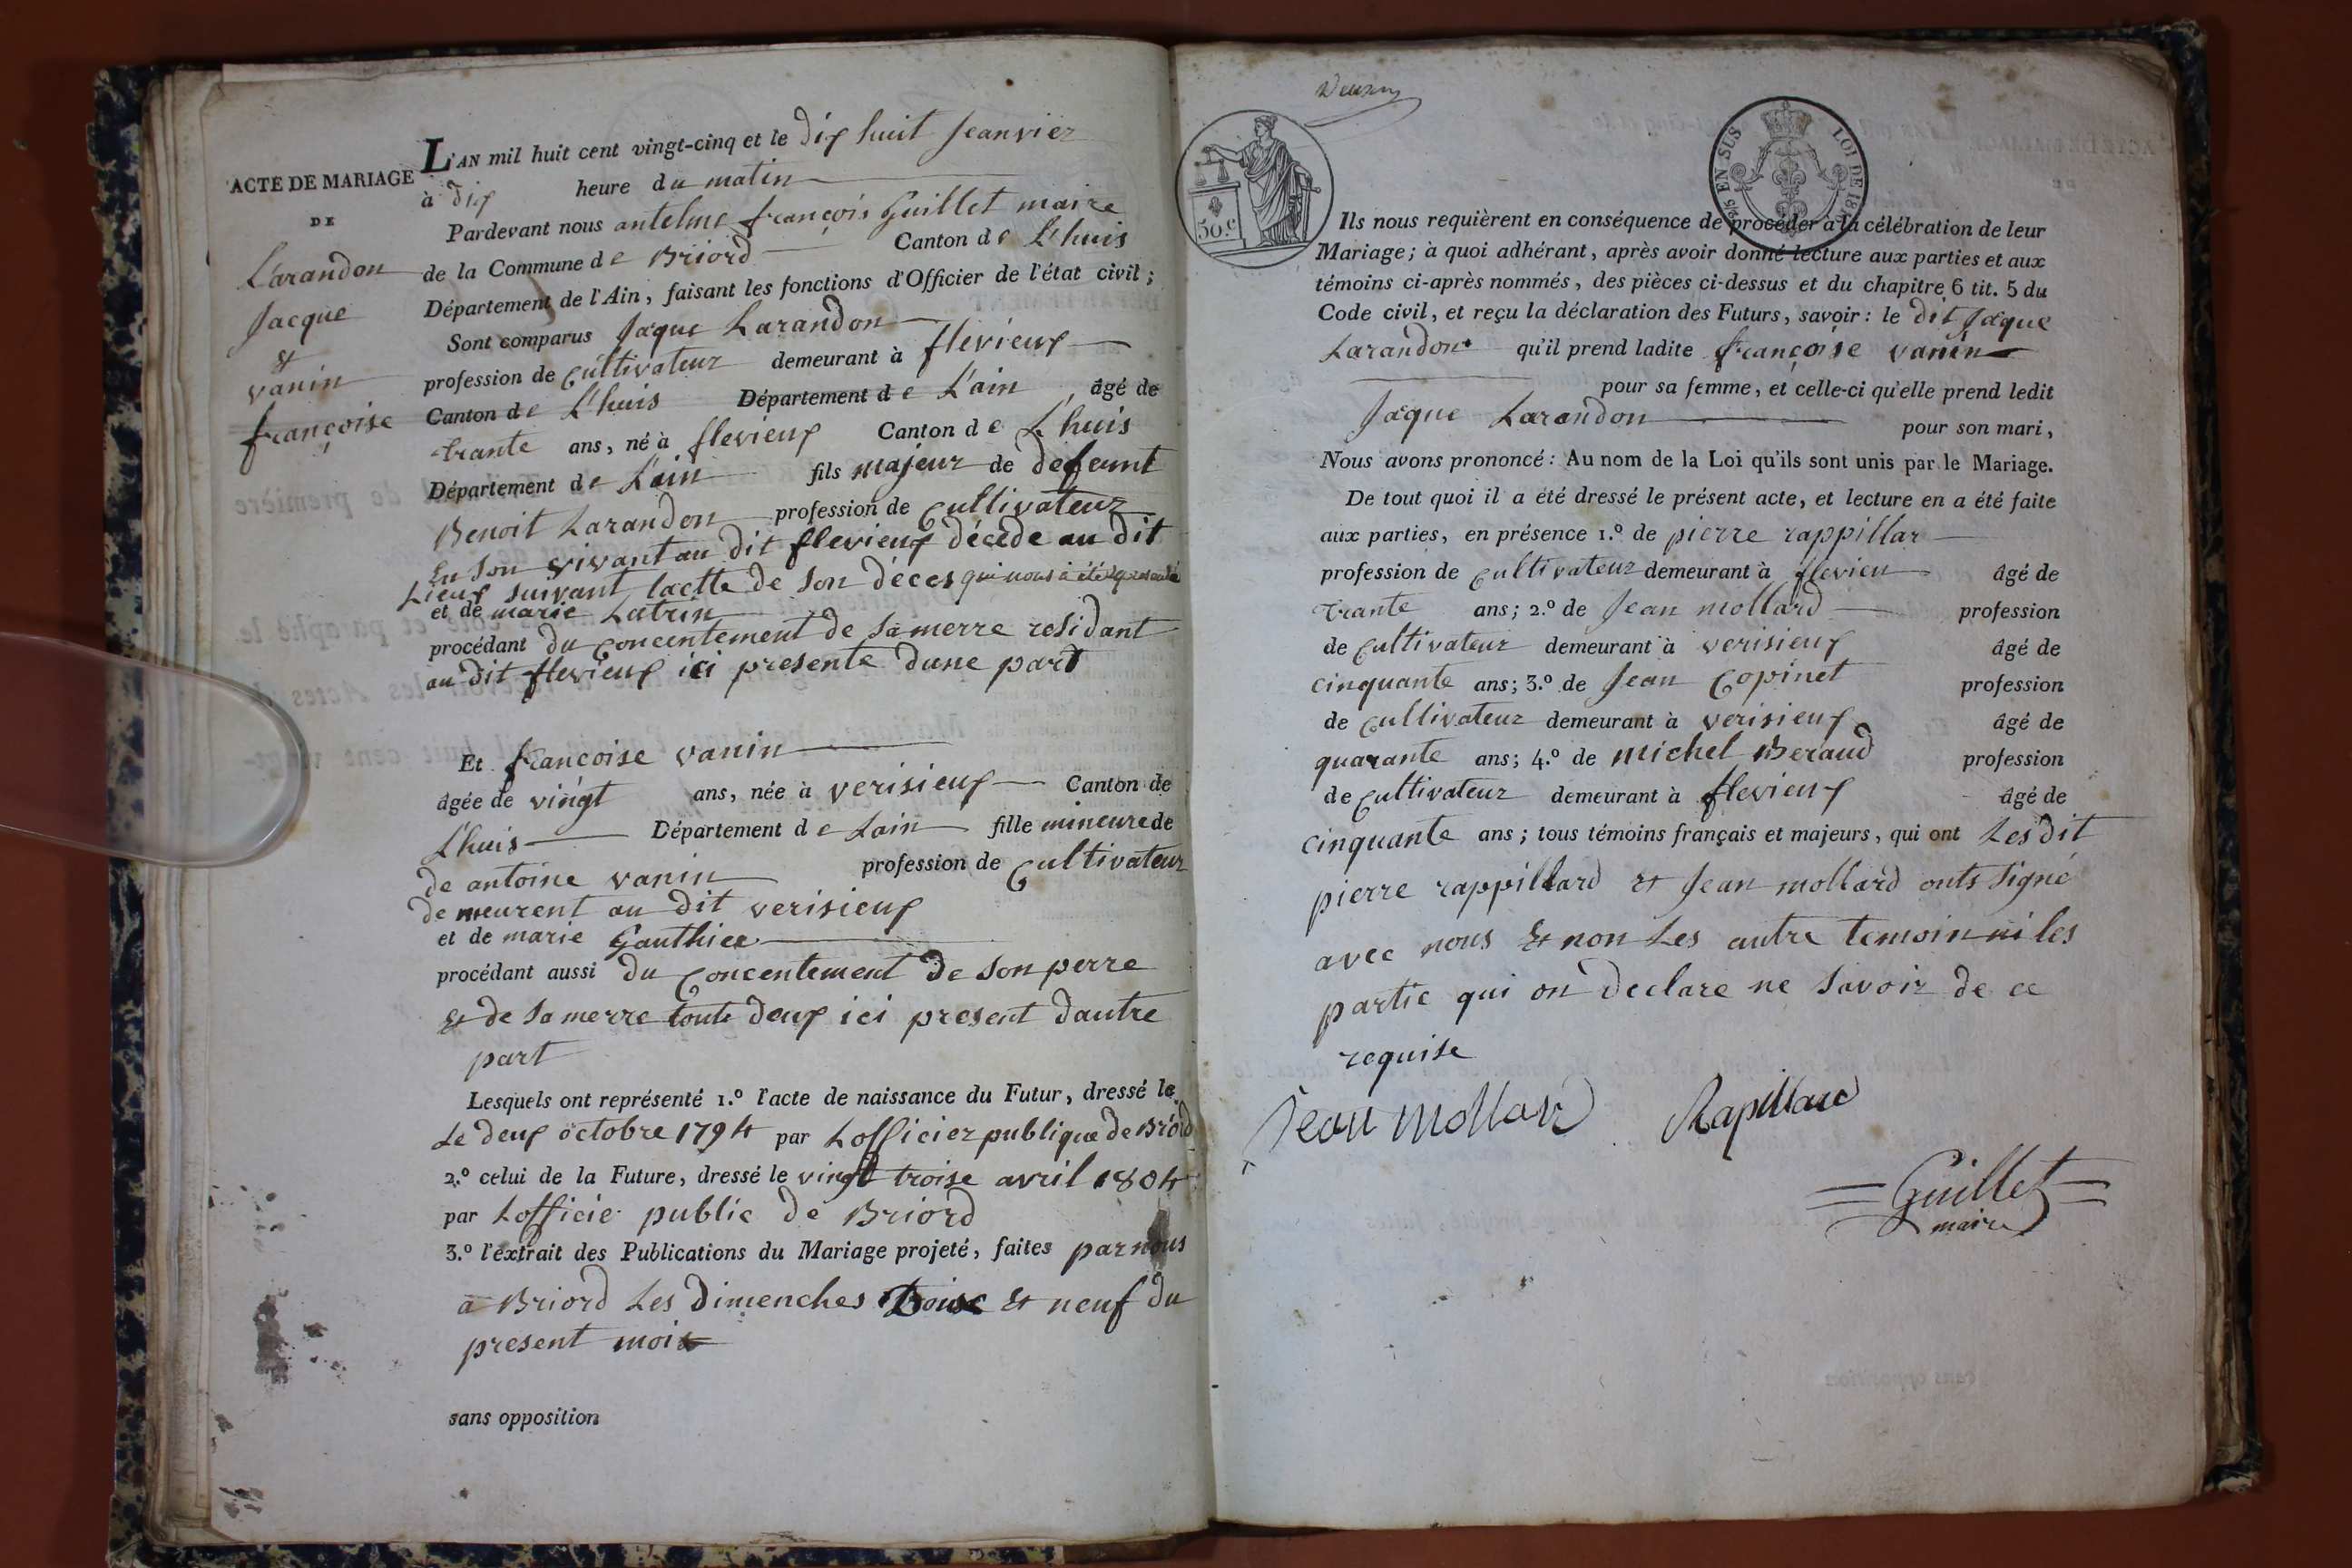 ACTE DE MARIAGE
DE
Larandon
Jacque
et
vanin
françoise
L'AN mil huit cent vingt-cinq et le dix huit Jeanvier
à dix heure du matin
Pardevant nous antelme françois Guillet maire
de la Commune de Briord Canton de L'huis
Département de l'Ain, faisant les fonctions d'Officier de l'état civil;
Sont comparus Jaque Larandon
profession de Cultivateur demeurant à flevieux
Canton de L'huis Département de L'ain âgé de
trante ans, né à flevieux Canton de L'huis
Département de L'ain fils majeur de defeunt
Benoit Larandon profession de Cultivateur
En son vivant au dit flevieux décéde au dit
Lieux suivant lactte de son déces qui nous à été
et de marie Latrin
procédant du Concentement de sa merre residant
au dit flevieux ici presente dune part
Et francoise vanin
âgée de vingt ans, née à verisieux Canton de
L'huis Département de Lain fille mineure de
de antoine vanin profession de Cultivateur
demeurent au dit verisieux
et de marie Gauthier
procédant aussi du Concentement de son perre
et de sa merre toute deux ici present dautre
part
Lesquels ont représenté 1.º l'acte de naissance du Futur, dressé le
Le deux octobre 1794 par Lofficier publique de Briord
2.º celui de la Future, dressé le vingt troise avril 1804
par Lofficie public de Briord
3.º l'extrait des Publications du Mariage projeté, faites par nous
a Briord Les dimenches Troise et neuf du
present mois
sans opposition
50.c
EN SUS
LOI DE
Ils nous requièrent en conséquence de procéder à la célébration de leur
Mariage; à quoi adhérant, après avoir donné lecture aux parties et aux
témoins ci-après nommés, des pièces ci-dessus et du chapitre 6 tit. 5 du
Code civil, et reçu la déclaration des Futurs, savoir: le dit Jaque
Larandon qu'il prend ladite françoise vanin
pour sa femme, et celle-ci qu'elle prend ledit
Jaque Larandon pour son mari,
Nous avons prononcé: Au nom de la Loi qu'ils sont unis par le Mariage.
De tout quoi il a été dressé le présent acte, et lecture en a été faite
aux parties, en présence 1.º de pierre rappillar
profession de Cultivateur demeurant à flevieu âgé de
trante ans; 2.º de Jean mollard profession
de Cultivateur demeurant à verisieux âgé de
cinquante ans; 3.º de Jean Copinet profession
de Cultivateur demeurant à verisieux âgé de
quarante ans; 4.º de Michel Beraud profession
de Cultivateur demeurant à flevieux âgé de
cinquante ans; tous témoins français et majeurs, qui ont Les dit
pierre rappillard et Jean mollard onts signé
avec nous et non Les autre temoin ni les
partie qui on declare ne savoir de ce
requise
Jean Mollard Rapillard
Guillet
maire